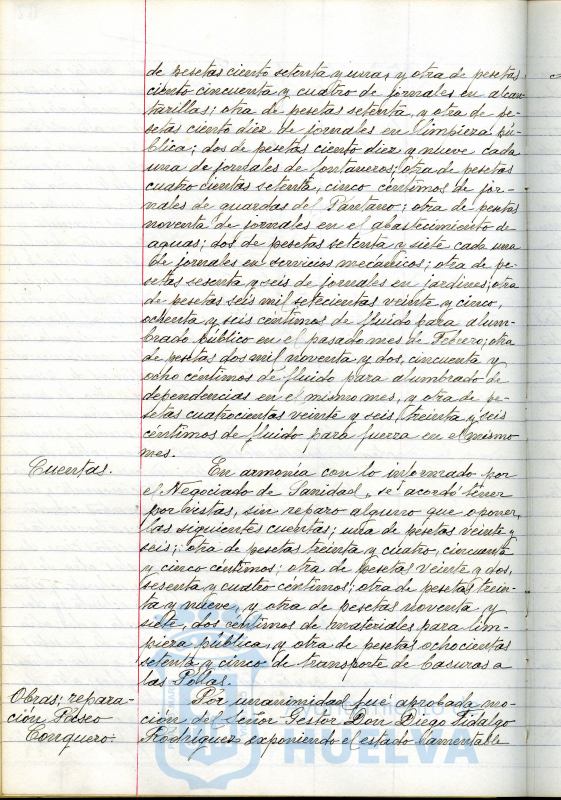 de pesetas ciento setenta y una, y otra de pesetas
ciento cincuenta y cuatro de jornales en alcan-
tarillas; otra de pesetas setenta, y otra de pe-
setas ciento diez de jornales en limpieza pú-
blica; dos de pesetas ciento diez y nueve cada
una de jornales de fontaneros; otra de pesetas
cuatrocientas setenta, cinco céntimos de jor-
nales de guardas del Pantano; otra de pesetas
noventa de jornales en el abastecimiento de
aguas; dos de pesetas setenta y siete cada una
de jornales en servicios mecánicos; otra de pe-
setas sesenta y seis de jornales en jardines; otra
de pesetas seis mil setecientas veinte y cinco,
ochenta y seis céntimos de fluido para alum-
brado público en el pasado mes de Febrero; otra
de pesetas dos mil noventa y dos, cincuenta y
ocho céntimos de fluido para alumbrado de
dependencias en el mismo mes, y otra de pe-
setas cuatrocientas veinte y seis, treinta y seis
céntimos de fluido para fuerza en el mismo
mes.
Cuentas. En armonía con lo informado por
el Negociado de Sanidad, se acordó tener
por vistas, sin reparo alguno que oponer,
las siguientes cuentas; una de pesetas veinte y
seis; otra de pesetas treinta y cuatro, cincuenta
y cinco céntimos; otra de pesetas veinte y dos,
sesenta y cuatro céntimos; otra de pesetas trein-
ta y nueve, y otra de pesetas noventa y
siete, dos céntimos de materiales para lim-
pieza pública, y otra de pesetas ochocientas
setenta y cinco de transporte de basuras a
las Pollas.
Obras; repara- Por unanimidad fué aprobada mo-
ción Paseo ción del Señor Gestor Don Diego Fidalgo
Conquero. Rodríguez exponiendo el estado lamentable
HUELVA